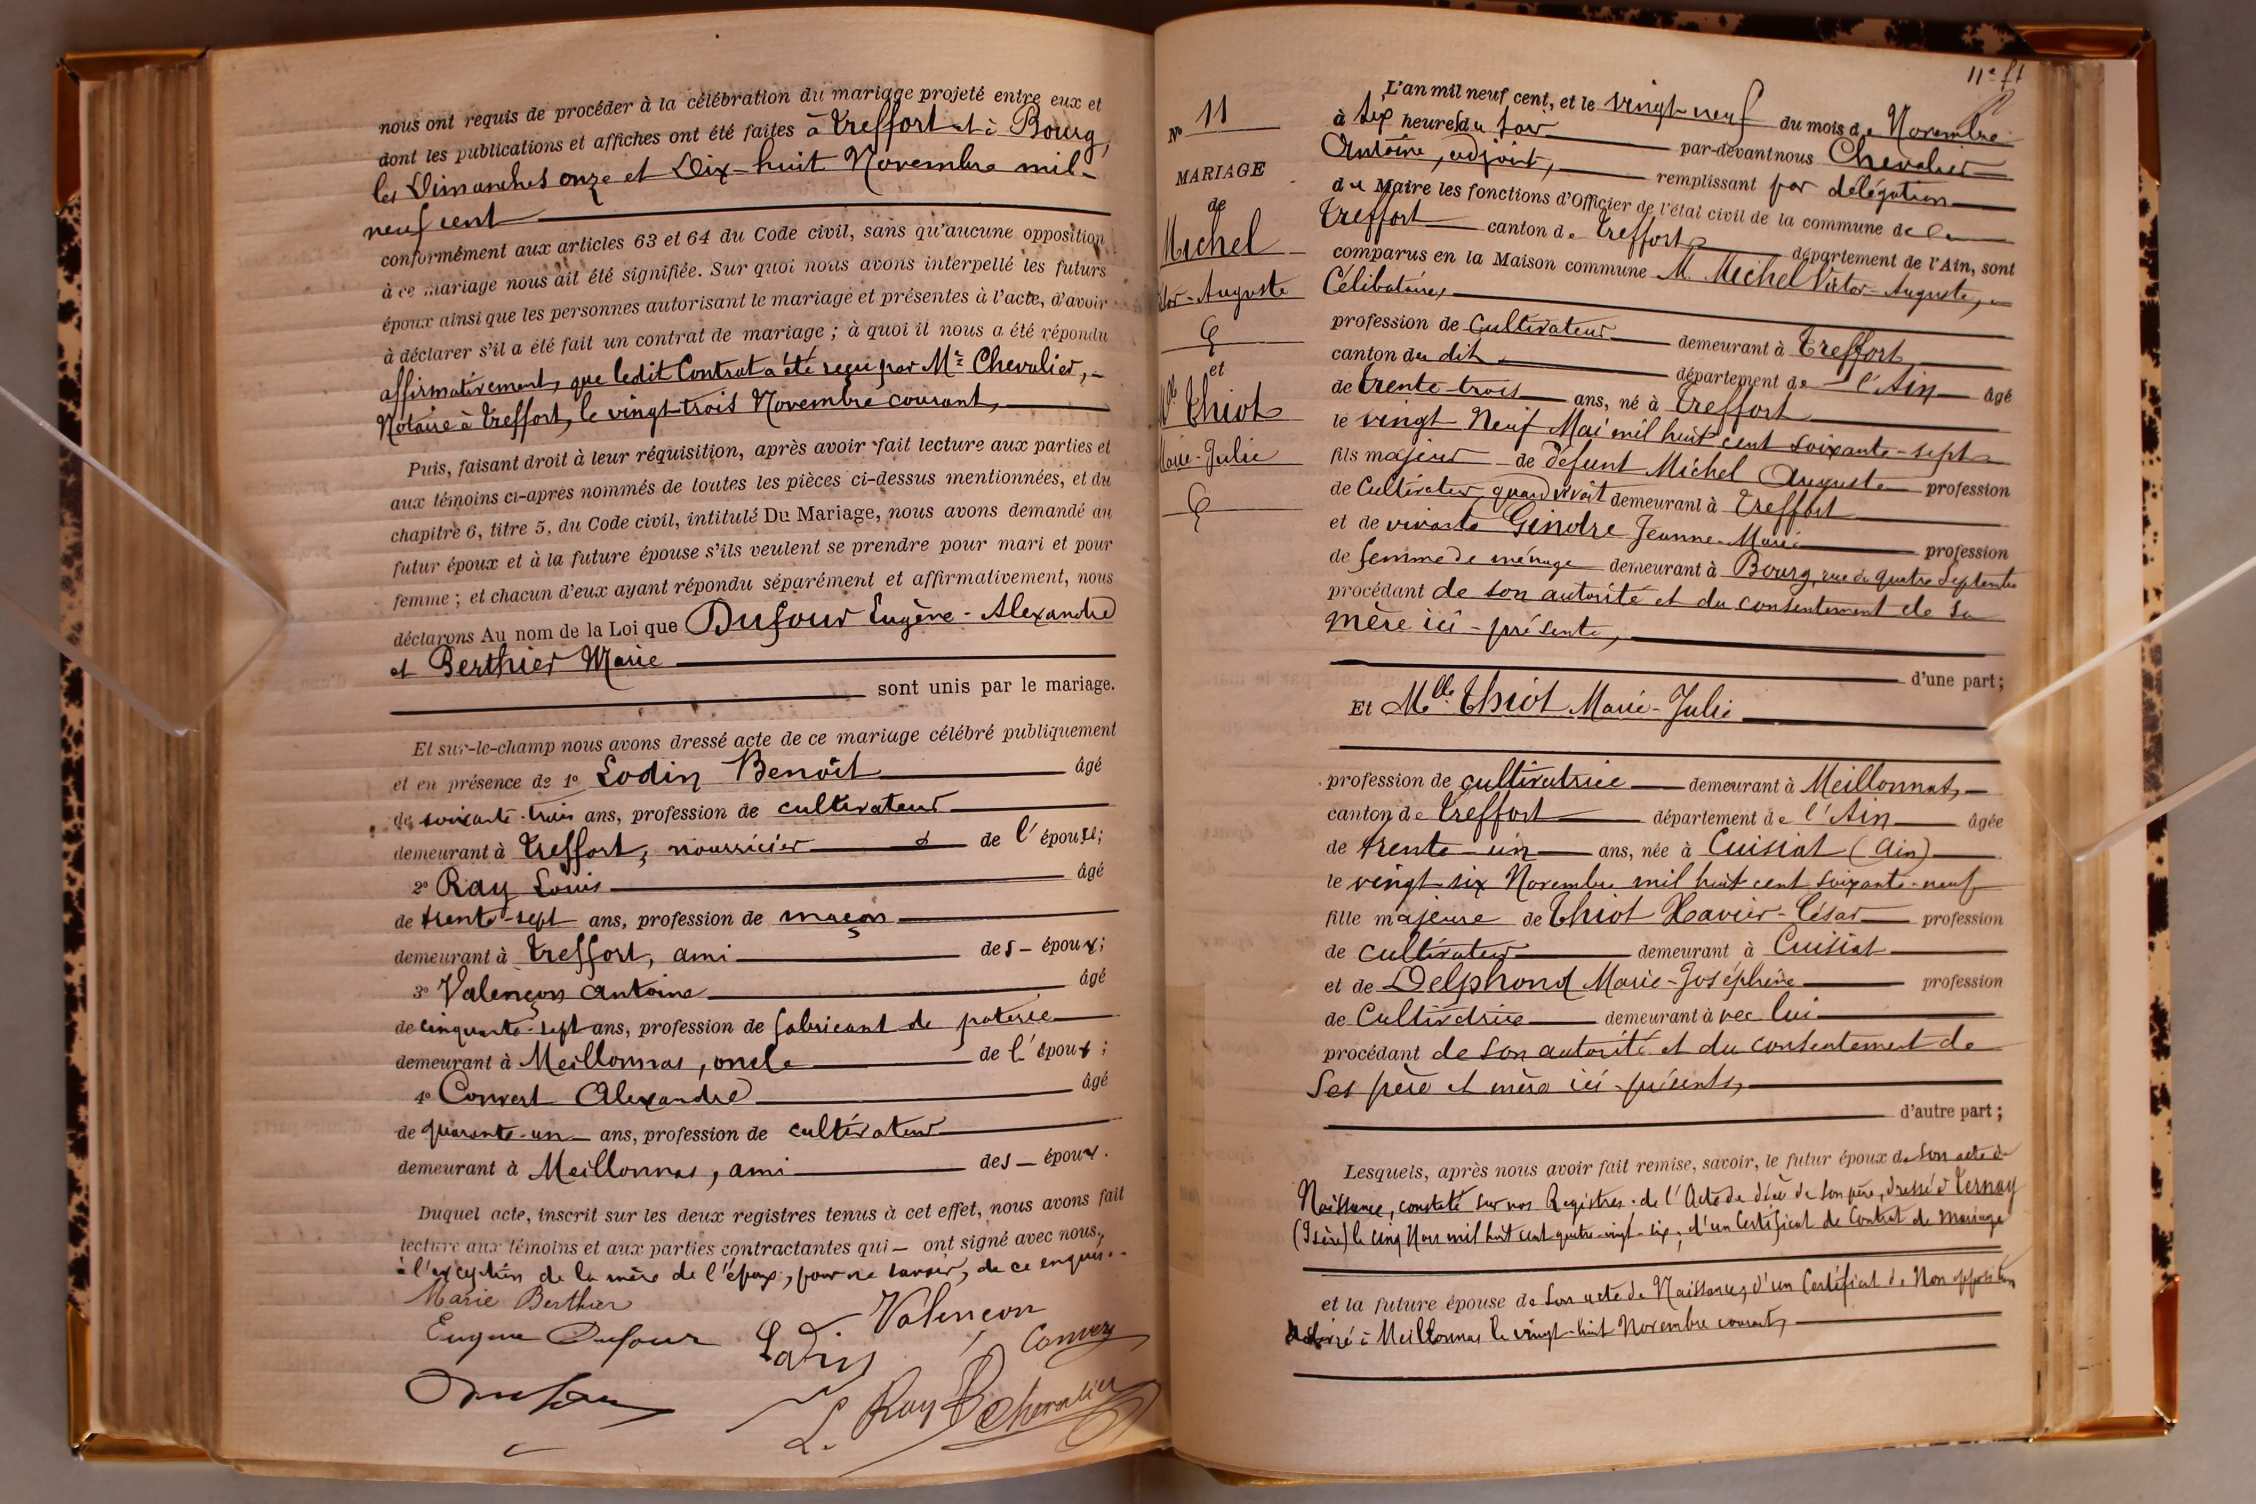 nous ont requis de procéder à la célébration du mariage projeté entre eux et
dont les publications et affiches ont été faites à Treffort et à Bourg,
les Dimanches onze et Dix-huit Novembre mil-
neuf cent
conformément aux articles 63 et 64 du Code civil, sans qu'aucune opposition
à ce mariage nous ait été signifiée. Sur quoi nous avons interpellé les futurs
époux ainsi que les personnes autorisant le mariage et présentes à l'acte, d'avoir
à déclarer s'il a été fait un contrat de mariage ; à quoi il nous a été répondu
affirmativement, que ledit Contrat a été reçu par Me Chevalier,
Notaire à Treffort, le vingt-trois Novembre courant,
Puis, faisant droit à leur réquisition, après avoir fait lecture aux parties et
aux témoins ci-après nommés de toutes les pièces ci-dessus mentionnées, et du
chapitre 6, titre 5, du Code civil, intitulé Du Mariage, nous avons demandé au
futur époux et à la future épouse s'ils veulent se prendre pour mari et pour
femme ; et chacun d'eux ayant répondu séparément et affirmativement, nous
déclarons Au nom de la Loi que Dufour Eugène-Alexandre
et Berthier Marie
sont unis par le mariage.
Et sur-le-champ nous avons dressé acte de ce mariage célébré publiquement
et en présence de 1º Lodin Benoît âgé
de soixante-trois ans, profession de cultivateur
demeurant à Treffort, nourricier de l'épouse;
2º Ray Louis âgé
de trente-sept ans, profession de maçon
demeurant à Treffort, ami des époux;
3º Valençon Antoine âgé
de cinquante-sept ans, profession de fabricant de poterie
demeurant à Meillonnas, oncle de l'époux;
4º Convert Alexandre âgé
de quarante-un ans, profession de cultivateur
demeurant à Meillonnas, ami des époux.
Duquel acte, inscrit sur les deux registres tenus à cet effet, nous avons fait
lecture aux témoins et aux parties contractantes qui ont signé avec nous,
à l'exception de la mère de l'époux, pour ne savoir, de ce enquis.
Marie Berthier
Eugène Dufour Valençon
Lodin Convert
Dufour L. Ray Chevalier
11e ft
Nº 11
MARIAGE
de
Michel
Victor-Auguste
et
Mlle Thiot
Marie-Julie
L'an mil neuf cent, et le vingt-neuf du mois de Novembre
à six heures du soir par-devant nous Chevalier
Antoine, adjoint, remplissant par délégation
du Maire les fonctions d'Officier de l'état civil de la commune de
Treffort canton de Treffort département de l'Ain, sont
comparus en la Maison commune M. Michel Victor-Auguste,
Célibataire,
profession de Cultivateur demeurant à Treffort
canton du dit département de l'Ain âgé
de trente-trois ans, né à Treffort
le vingt Neuf Mai mil huit cent soixante-sept
fils majeur de défunt Michel Auguste profession
de Cultivateur, quand vivait demeurant à Treffort
et de vivante Gindre Jeanne-Marie profession
de femme de ménage demeurant à Bourg, rue du quatre Septembre
procédant de son autorité et du consentement de sa
mère ici-présente,
d'une part;
Et Mlle Thiot Marie-Julie
profession de cultivatrice demeurant à Meillonnas,
canton de Treffort département de l'Ain âgée
de trente-un ans, née à Cuisiat (Ain)
le vingt-six Novembre mil huit cent soixante-neuf
fille majeure de Thiot Xavier-César profession
de cultivateur demeurant à Cuisiat
et de Delphond Marie-Joséphine profession
de Cultivatrice demeurant avec lui
procédant de son autorité et du consentement de
ses père et mère ici-présents,
d'autre part;
Lesquels, après nous avoir fait remise, savoir, le futur époux de son acte de
Naissance, constaté sur nos Registres. de l'Acte de décès de son père, dressé à Ternay
(Isère) le cinq Mars mil huit cent quatre-vingt-six, d'un Certificat de Contrat de mariage
et la future épouse de son acte de Naissance, d'un Certificat de Non opposition
délivré à Meillonnas le vingt-huit Novembre courant,